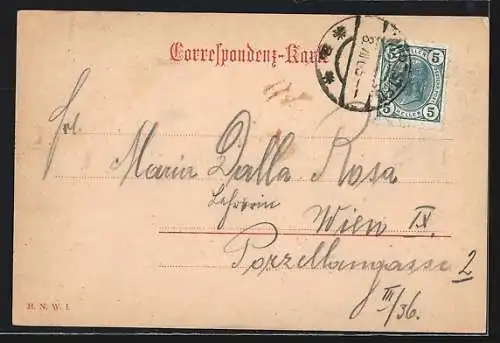 Correspondenz-Karte
5 HELLER 5
5 HELLER 5
Frl.
Maria Dalla Rosa
Lehrerin
Wien IX.
Porzellangasse 2
III/36.
B. N. W. I.